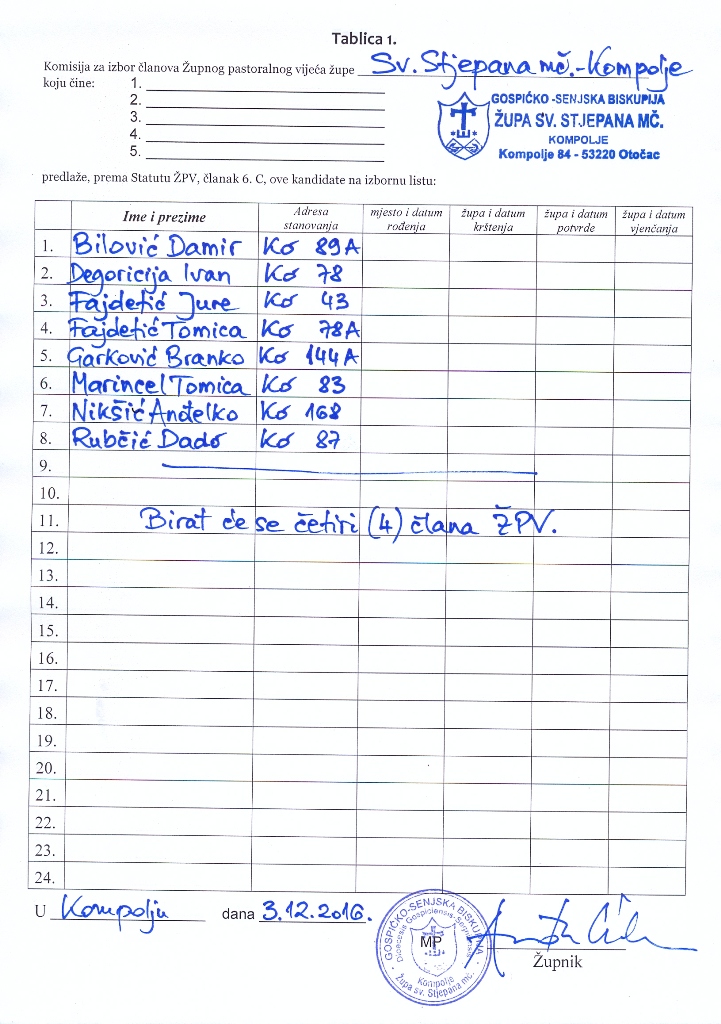 Tablica 1.
Komisija za izbor članova Župnog pastoralnog vijeća župe Sv. Stjepana mč.-Kompolje
koju čine:
1.
2.
3.
4.
5.
GOSPIĆKO-SENJSKA BISKUPIJA
ŽUPA SV. STJEPANA MČ.
KOMPOLJE
Kompolje 84 - 53220 Otočac
predlaže, prema Statutu ŽPV, članak 6. C, ove kandidate na izbornu listu:
Ime i prezime Adresa stanovanja mjesto i datum rođenja župa i datum krštenja župa i datum potvrde župa i datum vjenčanja
1. Bilović Damir Ko 89A
2. Degoricija Ivan Ko 78
3. Fajdetić Jure Ko 43
4. Fajdetić Tomica Ko 78A
5. Garković Branko Ko 144A
6. Marincel Tomica Ko 83
7. Nikšić Anđelko Ko 168
8. Rubčić Dado Ko 87
9.
10.
11. Birat će se četiri (4) člana ŽPV.
12.
13.
14.
15.
16.
17.
18.
19.
20.
21.
22.
23.
24.
U Kompolju dana 3.12.2016.
GOSPIĆKO-SENJSKA BISKUPIJA
Dioecesis Gospiciensis-Segniensis
MP
Kompolje
Župa sv. Stjepana mč.
Župnik